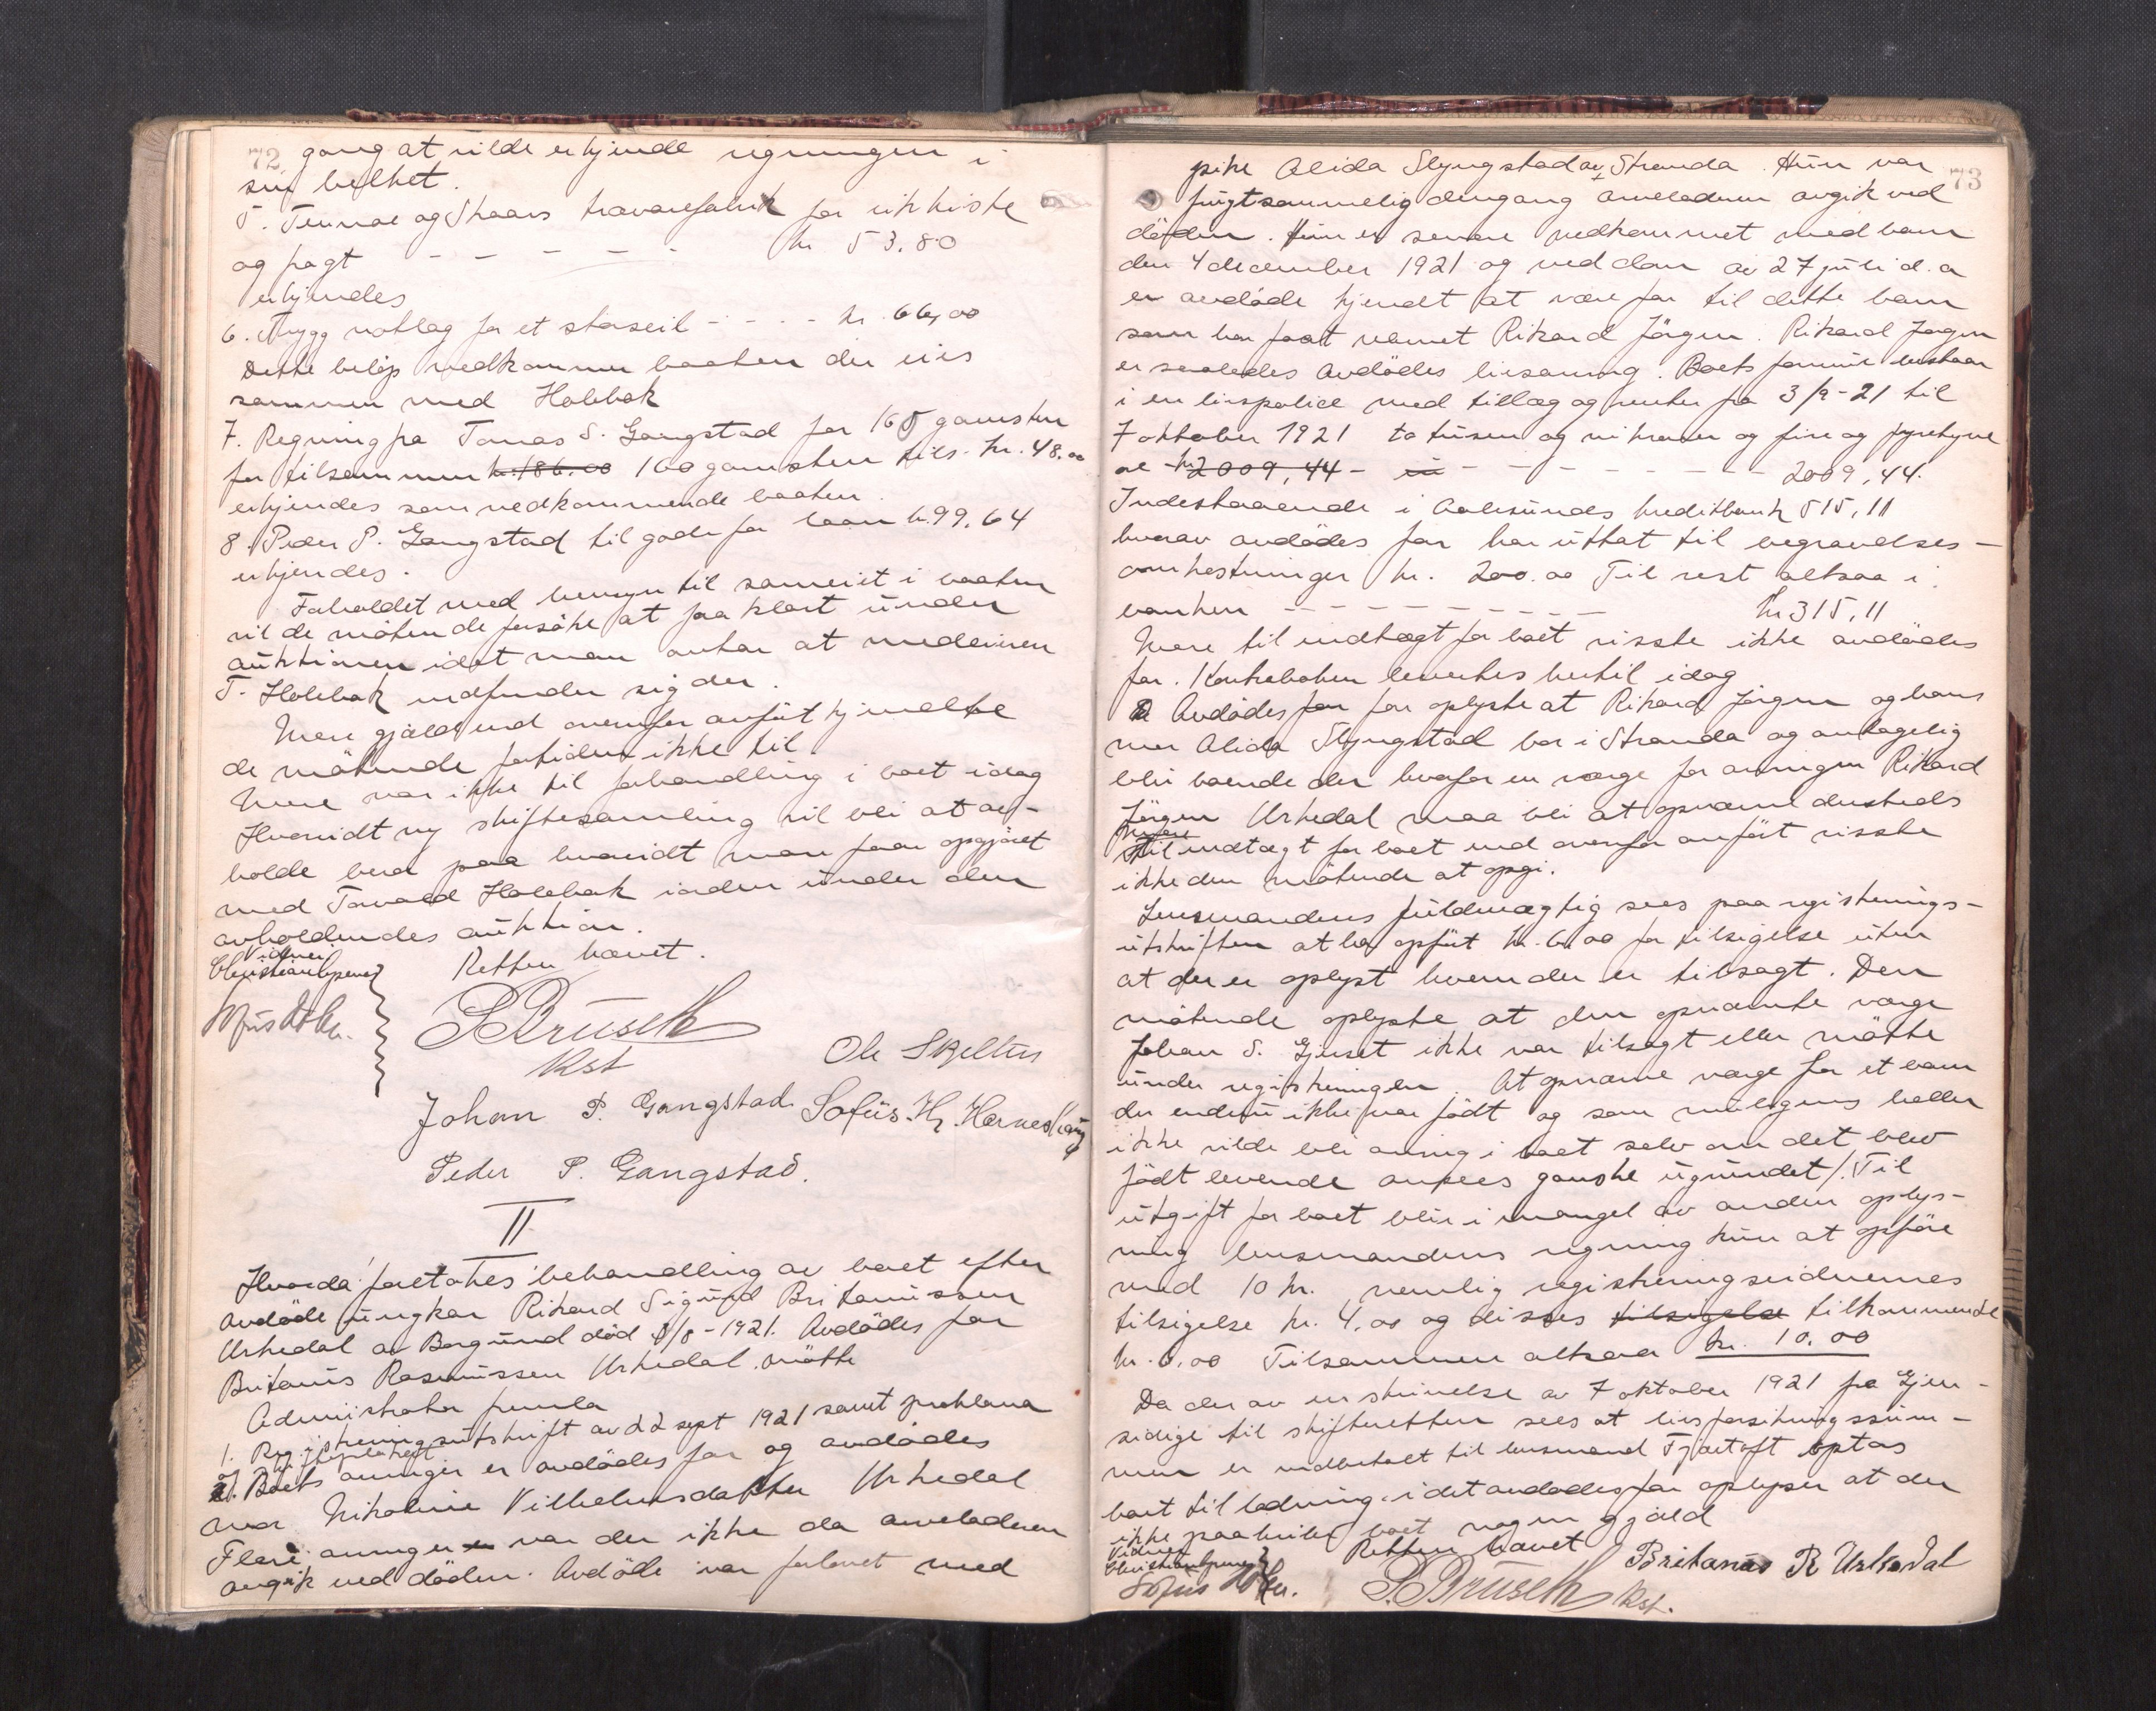 72 gang at vilde erkjende regningen i
sin helhet.
5. Tennøe og Skaars trævarefabrik for likkiste
og fragt - - - - - kr 53.80
erkjendes
6. Nygg notlag for et storseil - - - - kr. 66,00
Dette beløp vedkommer baaten der eies
sammen med Holebak
7. Regning fra Tomas S. Gangstad for 165 garnsten
for tilsammen kr. 186.00 160 garnsten tils. kr. 48.00
erkjendes som vedkommende baaten.
8. Peder P. Gangstad til gode for laan kr. 99.64
erkjendes.
Forholdet med hensyn til sameiet i baaten
vil de møtende forsøke at faa klart under
auktionen idet man antar at medeieren
T. Holebak indfinder sig der.
Mere gjæld end ovenfor anført kjendte
de møtende fortiden ikke til
Mere var ikke til forhandling i boet idag
Hvorvidt ny skiftesamling vil bli at av-
holde beror paa hvorvidt man faar opgjøret
med Torvald Holebak i orden under den
avholdendes auktion.
Retten hævet.
Vidner
P. Bruseth
Kst
Ole Skjelten
Johan P. Gangstad Sofus. Kr. Harnes
Peder P. Gangstad.
II
Hvorda foretokes behandling av boet efter
avdøde ungkar Rikard Sigurd Britanussen
Urkedal av Borgund død 8/8-1921. Avdødes far
Britanus Rasmussen Urkedal møtte
Administrator fremla
1. Registreringsutskrift av 22 sept 1921 samt proklama
2). Boets arvinger er avdødes far og avdødes
mor Nikoline Vilhelmsdatter Urkedal
Flere arvinger er var der ikke da arveladeren
avgik ved døden. Avdøde var forlovet med
73
pike Alida Slyngstad av Stranda. Hun var
frugtsommelig dengang arveladeren avgik ved
døden. Hun er senere nedkommet med barn
den 4 december 1921 og ved dom av 27 juli d.a
er avdøde kjendt at være far til dette barn
som har faat navnet Rikard Jørgen. Rikard Jørgen
er saaledes avdødes livsarving. Boets formue bestaar
i en livspolice med tillæg og renter fra 3/9-21 til
7 oktober 1921 to tusen og ni kroner og fire og fyretyve
øre - kr 2009,44 - - - - - - - - 2009,44.
Indestaaende i Aalesunds kreditbank 515,11
hvorav avdødes far har uttat til begravelses-
omkostninger kr. 200.00 Til rest altsaa i
banken - - - - - - - - - - kr 315,11
Mere til indtægt for boet visste ikke avdødes
far. Kontraboken levertes hertil idag
Avdødes far oplyste at Rikard Jørgen og hans
mor Alida Slyngstad bor i Stranda og antagelig
blir boende der hvorfor en værge for arvingen Rikard
Jørgen Urkedal maa bli at opnævne dersteds
Mere
til indtægt for boet end ovenfor anført visste
ikke den møtende at opgi.
Lensmandens fuldmægtig sees paa registrerings-
utskriften at ha opført kr. 6.00 for tilsigelse uten
at der er oplyst hvem der er tilsagt. Den
møtende oplyste at den opnævnte værge
Johan S. Gjerset ikke var tilsagt eller møtte
under registreringen. At opnævne værge for et barn
der endnu ikke var født og som muligens heller
ikke vilde bli arving i boet selv om det blev
født levende ansees ganske ugrundet/. Til
utgift for boet blir i mangel av anden oplys-
ning lensmandens regning kun at opføre
med 10 kr. nemlig registreringsvidnernes
tilsigelse kr. 4.00 og disses tilsigelse tilkommende
kr. 6.00 Tilsammen altsaa kr. 10.00
Da der av en skrivelse av 7 oktober 1921 fra Gjen-
sidige til skifteretten sees at livsforsikringssum-
men er indbetalt til lensmand Fjørtoft optas
boet til lodning, idet avdødes far oplyser at der
ikke paahviler boet nogen gjæld
Retten hævet
Vidner
Britanus R Urkedal
P. Bruseth Kst.